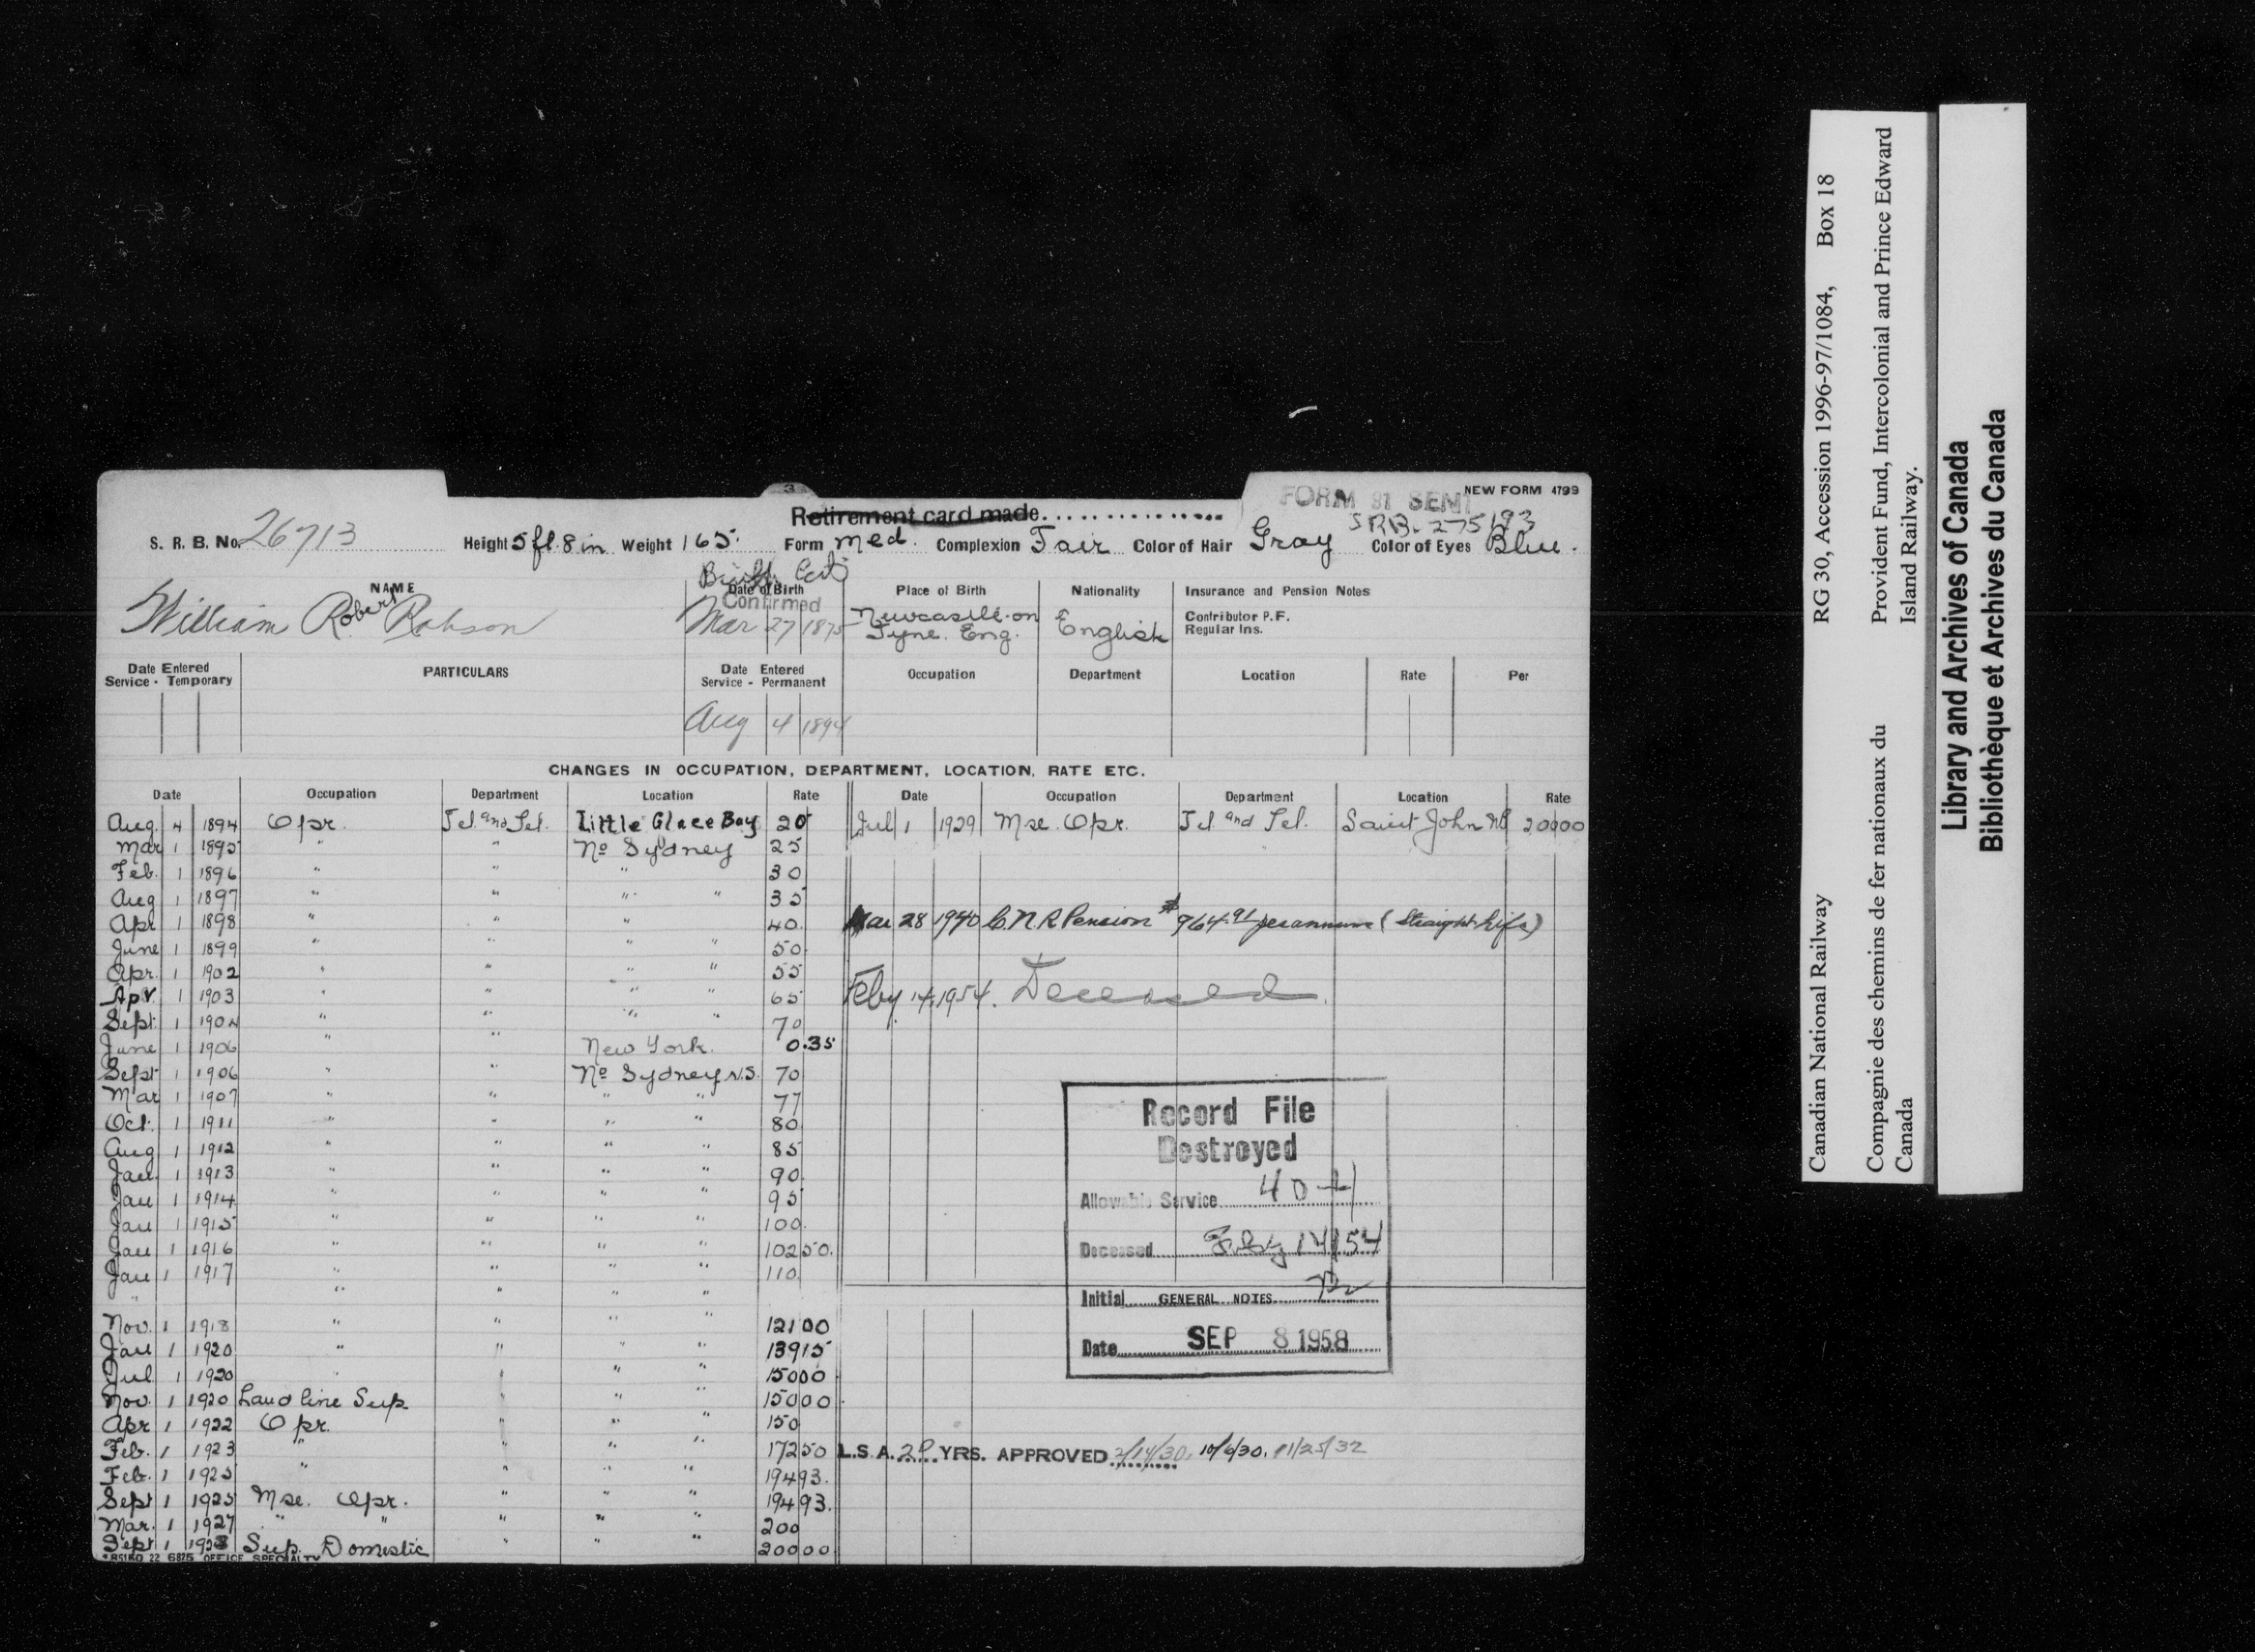 3
FORM 81 SENT
NEW FORM 4799
Retirement card made
SRB. 275193
S. R. B. No. 26713 Height 5 ft. 8 in Weight 165. Form Med. Complexion Fair Color of Hair Gray Color of Eyes Blue.
Birth
NAME Date of Birth Place of Birth Nationality Insurance and Pension Notes
Confirmed
William Robert Robson Mar 27 1875 Newcastle-on Tyne. Eng. English Contributor P.F.
Regular Ins.
Date Entered Service - Temporary PARTICULARS Date Entered Service - Permanent Occupation Department Location Rate Per
Aug 4 1894
CHANGES IN OCCUPATION, DEPARTMENT, LOCATION, RATE ETC.
Date Occupation Department Location Rate
Aug. 4 1894 Opr. Tel. and Tel. Little Glace Bay 20
Mar 1 1895 " " No Sydney 25
Feb. 1 1896 " " " 30
Aug 1 1897 " " " " 35
Apr 1 1898 " " " 40
June 1 1899 " " " " 50
Apr. 1 1902 " " " " 55
Apr. 1 1903 " " " " 65
Sept. 1 1904 " " " " 70
June 1 1906 " " New York. 0.35
Sept 1 1906 " " No Sydney N.S. 70
Mar 1 1907 " " " " 77
Oct. 1 1911 " " " " 80
Aug 1 1912 " " " " 85
Jan. 1 1913 " " " " 90
Jan 1 1914 " " " " 95
Jan 1 1915 " " " " 100
Jan 1 1916 " " " " 102 50
Jan 1 1917 " " " " 110
" " " " "
Nov. 1 1918 " " " " 121 00
Jan 1 1920 " " " " 139 15
Jul 1 1920 " " " 150 00
Nov. 1 1920 Land line Sup " " 150 00
Apr 1 1922 Opr. " " 150
Feb. 1 1923 " " " " 172 50
Feb. 1 1925 " " " " 194 93
Sept 1 1925 Mse. Opr. " " " 194 93
Mar. 1 1927 " " " " " 200
Sept 1 1928 Sup. Domestic " " " 200 00
22 6825 OFFICE SPECIALTY
Date Occupation Department Location Rate
Jul 1 1929 Mse. Opr. Tel. and Tel. Saint John NB 200 00
Mar 28 1940 C.N.R Pension $964.91 per annum (Straight Life)
Feby. 14, 1954. Deceased.
Record File
Destroyed
Allowable Service
Deceased Feby 14/54
Initial
GENERAL NOTES
Date SEP 8 1958
L.S.A. YRS. APPROVED 2/14/30, 10/6/30, 11/25/32
Canadian National Railway RG 30, Accession 1996-97/1084, Box 18
Compagnie des chemins de fer nationaux du Canada Provident Fund, Intercolonial and Prince Edward Island Railway.
Library and Archives of Canada
Bibliothèque et Archives du Canada